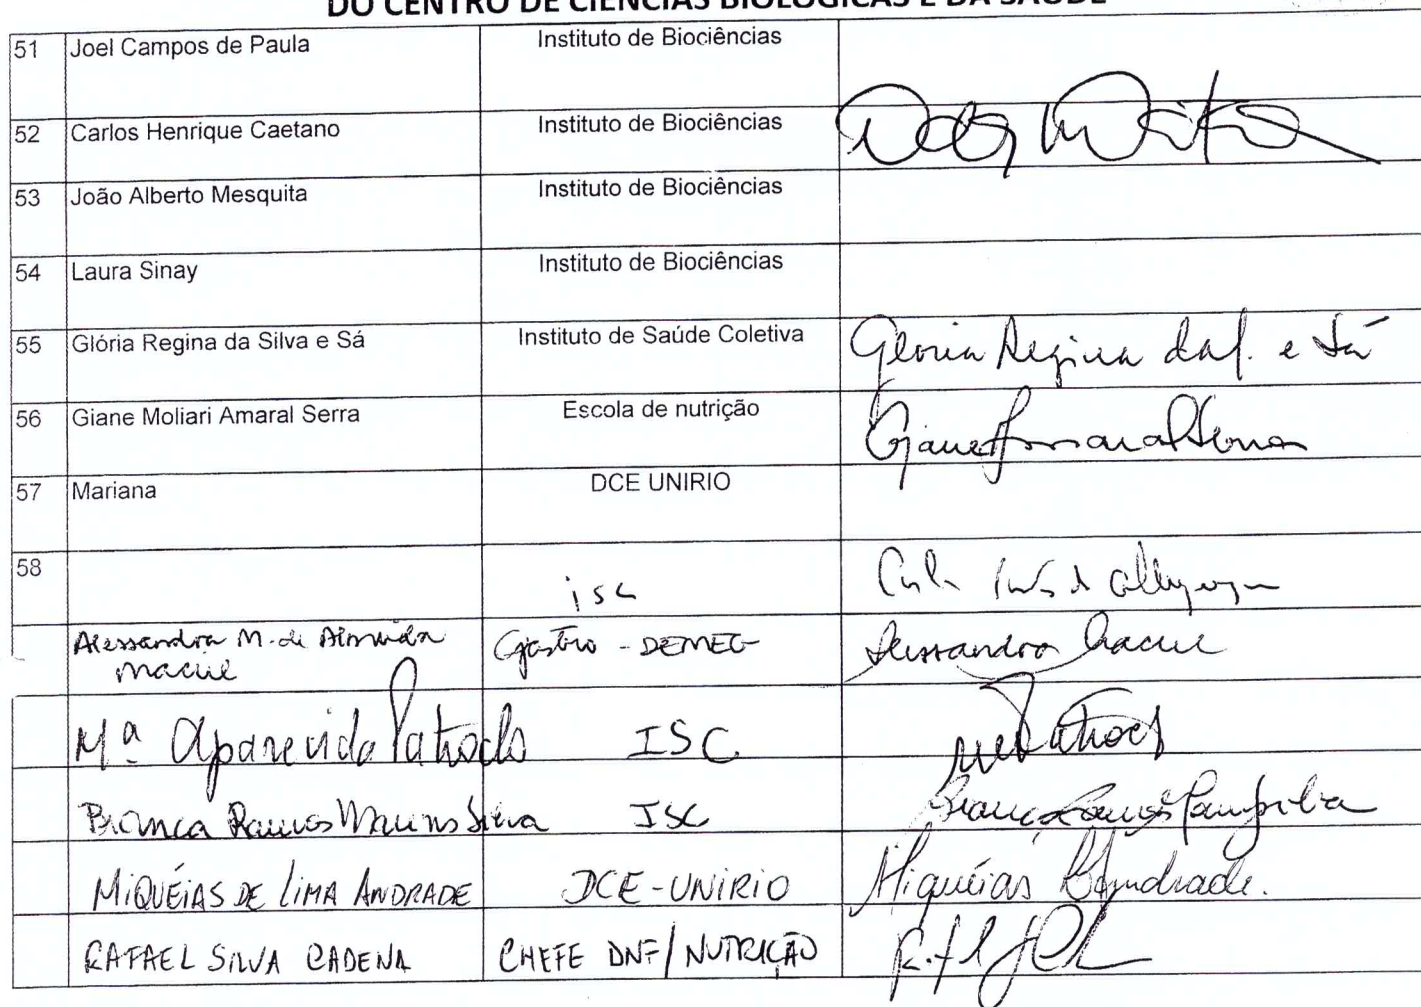 DO CENTRO DE CIÊNCIAS BIOLÓGICAS E DA SAÚDE
51 Joel Campos de Paula Instituto de Biociências
52 Carlos Henrique Caetano Instituto de Biociências
53 João Alberto Mesquita Instituto de Biociências
54 Laura Sinay Instituto de Biociências
55 Glória Regina da Silva e Sá Instituto de Saúde Coletiva Gloria Regina da S. e Sá
56 Giane Moliari Amaral Serra Escola de nutrição Giane Amaral Serra
57 Mariana DCE UNIRIO
58 isc
Alessandra M. de Almeida Gastro - DEMEG Alessandra Maciel
Maciel
Mª Aparecida Patroclo ISC
Branca Ramos Silva ISC
MIQUÉIAS DE LIMA ANDRADE DCE-UNIRIO Miquéias Andrade.
RAFAEL SILVA CADENA CHEFE DNF/NUTRIÇÃO